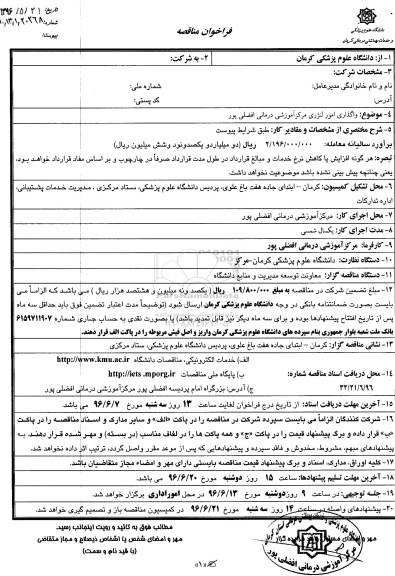 دانشگاه علوم پزشکی
و خدمات بهداشتی درمانی کرمان
فراخوان مناقصه
تاریخ: ۱۳۹۶/۵/۳۱
شماره:
پیوست:
۱- از: دانشگاه علوم پزشکی کرمان
۲- به شرکت:
۳- مشخصات شرکت:
نام و نام خانوادگی مدیرعامل:
شماره ملی:
آدرس:
کد پستی:
۴- موضوع: واگذاری امور لنژری مرکزآموزشی درمانی افضلی پور
۵- شرح مختصری از مشخصات و مقادیر کار: طبق شرایط پیوست
برآورد سالیانه معامله: ۲/۱۹۶/۰۰۰/۰۰۰ ریال (دو میلیاردو یکصدونود وشش میلیون ریال)
تبصره: هر گونه افزایش یا کاهش نرخ خدمات و مبالغ قرارداد در طول مدت قرارداد صرفاً در چارچوب و بر اساس مفاد قرارداد خواهد بود،
یعنی چنانچه پیش بینی نشده باشد موضوعیت نخواهد داشت.
۶- محل تشکیل کمیسیون: کرمان – ابتدای جاده هفت باغ علوی، پردیس دانشگاه علوم پزشکی، ستاد مرکزی، مدیریت خدمات پشتیبانی،
اداره تدارکات
۷- محل اجرای کار: مرکزآموزشی درمانی افضلی پور
۸- مدت اجرای کار: یکسال شمسی
۹- کارفرما: مرکزآموزشی درمانی افضلی پور
۱۰- دستگاه نظارت: دانشگاه علوم پزشکی کرمان-مرکز
۱۱- دستگاه مناقصه گزار: معاونت توسعه مدیریت و منابع دانشگاه
۱۲- مبلغ تضمین شرکت در مناقصه به مبلغ ۱۰۹/۸۰۰/۰۰۰ ریال (یکصد ونه میلیون و هشتصد هزار ریال) می باشد که الزاماً می
بایست بصورت ضمانتنامه بانکی در وجه دانشگاه علوم پزشکی کرمان ارسال شود (توضیحاً مدت اعتبار تضمین فوق باید حداقل سه ماه
پس از تاریخ افتتاح پیشنهادها بوده و برای سه ماه دیگر نیز قابل تمدید باشد) یا بصورت نقدی به حساب جاری شماره ۶۱۵۹۷۱۱۹۰۷
بانک ملت شعبه بلوار جمهوری بنام سپرده های دانشگاه علوم پزشکی کرمان واریز و اصل فیش مربوطه را در پاکت الف قرار دهند.
۱۳- نشانی مناقصه گزار: کرمان – ابتدای جاده هفت باغ علوی، پردیس دانشگاه علوم پزشکی، ستاد مرکزی
۱۴- محل دریافت اسناد مناقصه شماره:
۳۲/۲۱/۶/۹۶
الف) خدمات الکترونیکی، مناقصات دانشگاه http://www.kmu.ac.ir
ب) پایگاه ملی مناقصات http://iets.mporg.ir
ج) بزرگراه امام پردیسه افضلی پور مرکزآموزشی درمانی افضلی پور
۱۵- آخرین مهلت دریافت اسناد: از تاریخ درج فراخوان لغایت ساعت ۱۳ روز سه شنبه مورخ ۹۶/۶/۷ می باشد.
۱۶- شرکت کنندگان الزاماً می بایست سپرده شرکت در مناقصه را در پاکت «الف» و سایر مدارک و اسناد مناقصه را در پاکت
«ب» قرار داده و برگ پیشنهاد قیمت را در پاکت «ج» و همه پاکت ها را در لفاف مناسب (در بسته) و مهر شده قرار دهند. به
پیشنهادهای مبهم، مشروط، مخدوش و فاقد سپرده و پیشنهادهایی که پس از موعد مقرر واصل گردد، ترتیب اثر داده نخواهد شد.
۱۷- کلیه اوراق، مدارک، اسناد و برگ پیشنهاد قیمت مناقصه بایستی دارای مهر و امضاء مجاز متقاضیان باشد.
۱۸- آخرین مهلت تسلیم پیشنهادها: ساعت ۱۵ روز دوشنبه مورخ ۹۶/۶/۲۰ می باشد.
۱۹- جلسه توجیهی: در ساعت ۹ روز دوشنبه مورخ ۹۶/۶/۱۳ در محل اموراداری برگزار خواهد شد.
۲۰- پیشنهادهای واصله در ساعت ۱۴ روز سه شنبه مورخ ۹۶/۶/۲۱ در کمیسیون مناقصه باز و تصمیم گیری خواهد شد.
مطالب فوق به تائید و رویت اینجانب رسید
مهر و امضای شخص یا اشخاص ذیصلاح و مجاز متقاضی
(با قید نام و سمت)
مرکز آموزشی درمانی افضلی پور